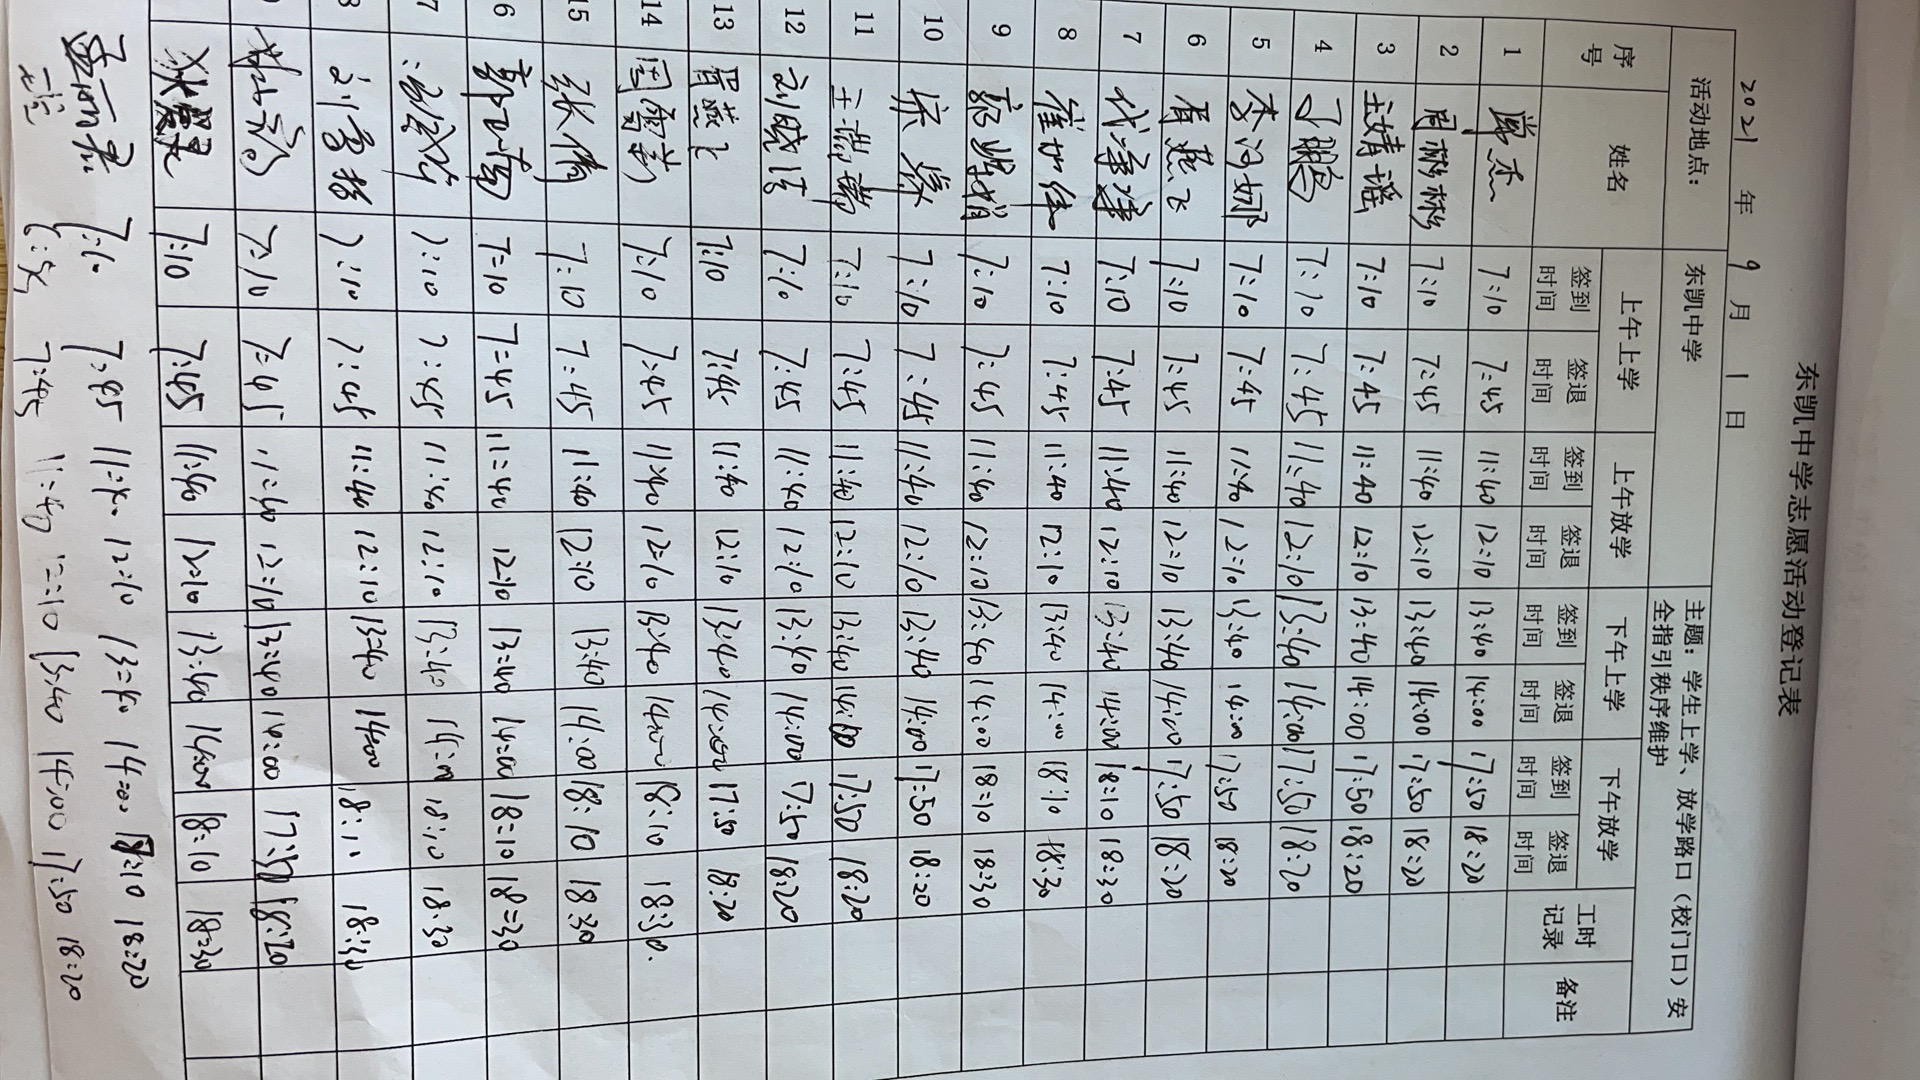 东凯中学志愿活动登记表
2021 年 9 月 1 日
活动地点： 东凯中学 主题：学生上学、放学路口（校门口）安
全指引秩序维护
序号 姓名 上午上学 上午放学 下午上学 下午放学 工时记录 备注
签到时间 签退时间 签到时间 签退时间 签到时间 签退时间 签到时间 签退时间
1 杰 7:10 7:45 11:40 12:10 13:40 14:00 17:50 18:20
2 周彬彬 7:10 7:45 11:40 12:10 13:40 14:00 17:50 18:20
3 王婧瑶 7:10 7:45 11:40 12:10 13:40 14:00 17:50 18:20
4 丁鹏 7:10 7:45 11:40 12:10 13:40 14:00 17:50 18:20
5 李 娜 7:10 7:45 11:40 12:10 13:40 14:00 17:50 18:20
6 胥燕飞 7:10 7:45 11:40 12:10 13:40 14:00 17:50 18:20
7 7:10 7:45 11:40 12:10 13:40 14:00 18:10 18:30
8 崔 7:10 7:45 11:40 12:10 13:40 14:00 18:10 18:30
9 娟 7:10 7:45 11:40 12:10 13:40 14:00 18:10 18:30
10 7:10 7:45 11:40 12:10 13:40 14:00 17:50 18:20
11 王 7:10 7:45 11:40 12:10 13:40 14:00 17:50 18:20
12 刘晓 7:10 7:45 11:40 12:10 13:40 14:00 17:50 18:20
13 胥燕飞 7:10 7:45 11:40 12:10 13:40 14:00 17:50 18:20
14 周 7:10 7:45 11:40 12:10 13:40 14:00 18:10 18:30
15 张倩 7:10 7:45 11:40 12:10 13:40 14:00 18:10 18:30
6 郭 7:10 7:45 11:40 12:10 13:40 14:00 18:10 18:30
7 7:10 7:45 11:40 12:10 13:40 14:00 18:10 18:30
8 刘 7:10 7:45 11:40 12:10 13:40 14:00 18:30
7:10 7:45 11:40 12:10 13:40 14:00 17:50 18:20
7:10 7:45 11:40 12:10 13:40 14:00 18:10 18:30
7:10 7:45 11:40 12:10 13:40 14:00 18:10 18:20
7:45 11:40 12:10 13:40 14:00 17:50 18:20